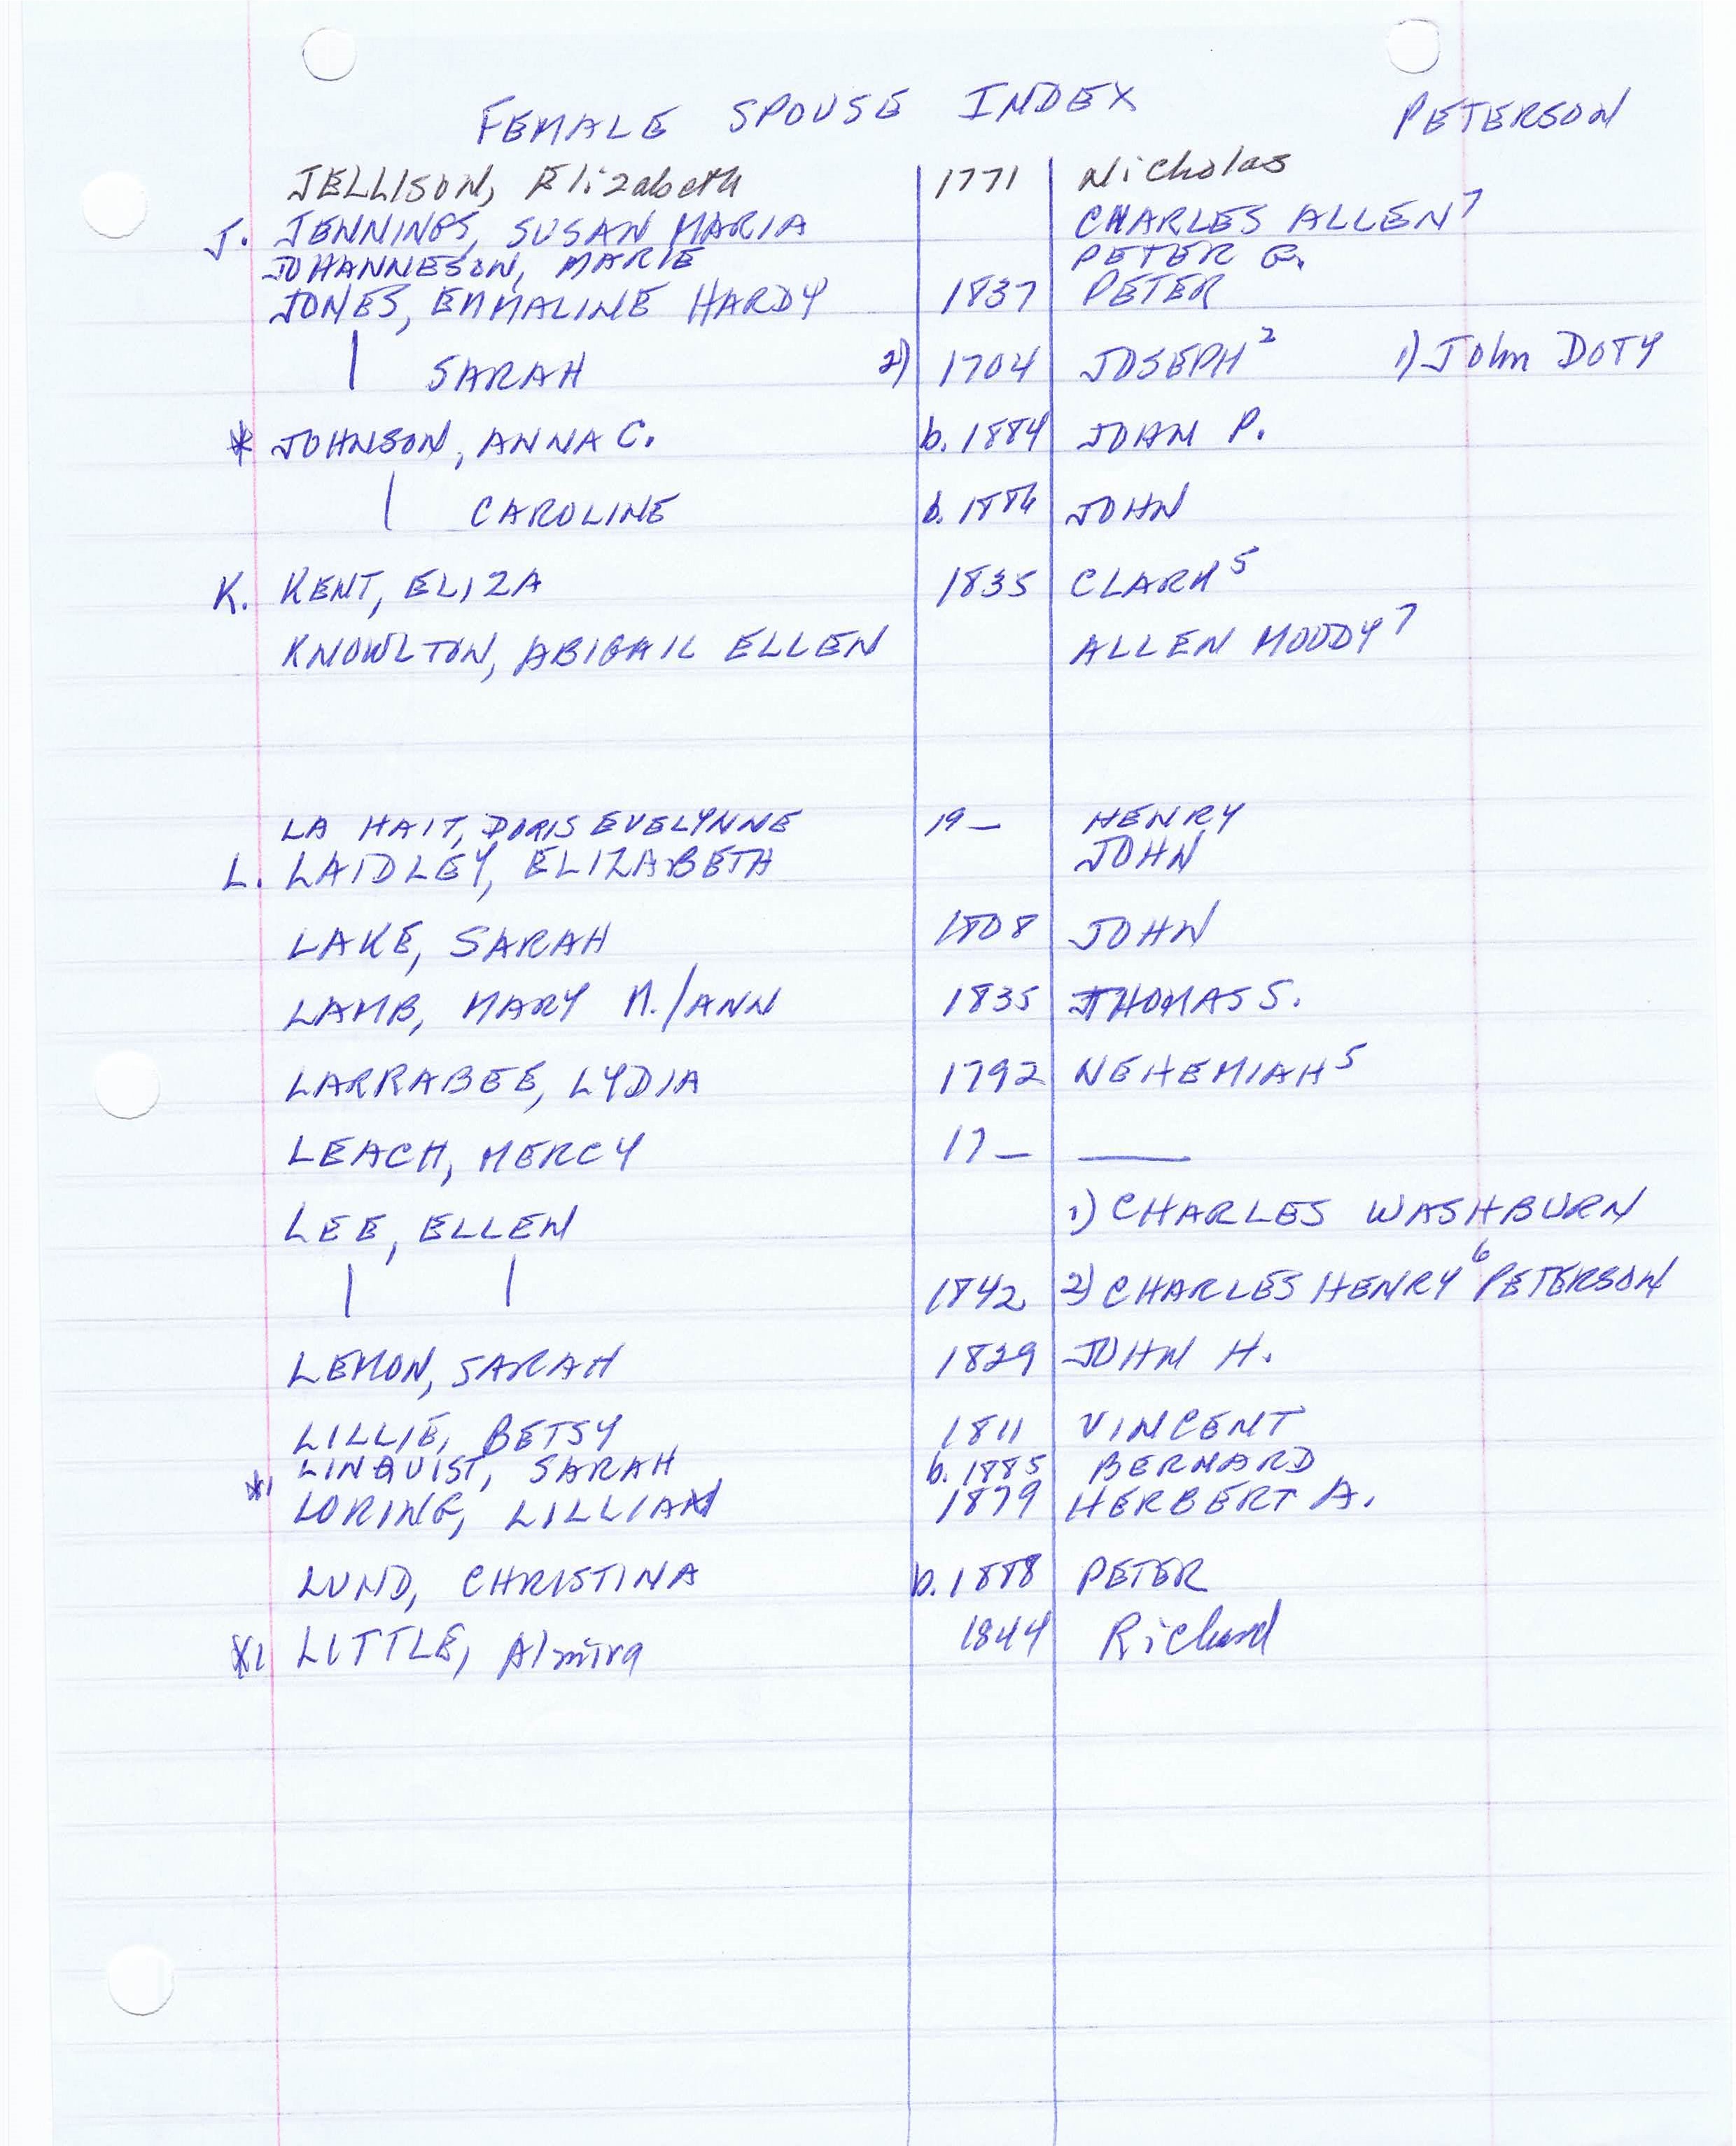 FEMALE SPOUSE INDEX PETERSON
JELLISON, Elizabeth 1771 Nicholas
J. JENNINGS, SUSAN MARIA CHARLES ALLEN⁷
JOHANNESON, MARIE PETER G.
JONES, EMMALINE HARDY 1837 PETER
| SARAH 2) 1704 JOSEPH² 1) John DOTY
* JOHNSON, ANNA C. b. 1884 JOHN P.
| CAROLINE b. 1886 JOHN
K. KENT, ELIZA 1835 CLARK⁵
KNOWLTON, ABIGAIL ELLEN ALLEN MOODY⁷
LA HAIT, DORIS EVELYNNE 19— HENRY
L. LAIDLEY, ELIZABETH JOHN
LAKE, SARAH 1808 JOHN
LAMB, MARY M./ANN 1835 THOMAS S.
LARRABEE, LYDIA 1792 NEHEMIAH⁵
LEACH, MERCY 17— ——
LEE, ELLEN 1) CHARLES WASHBURN
| | 1842 2) CHARLES HENRY⁶ PETERSON
LEMON, SARAH 1829 JOHN H.
LILLIE, BETSY 1811 VINCENT
LINQUIST, SARAH b. 1885 BERNARD
*1 LORING, LILLIAN 1879 HERBERT A.
LUND, CHRISTINA b. 1888 PETER
*1 LITTLE, Almira 1844 Richard